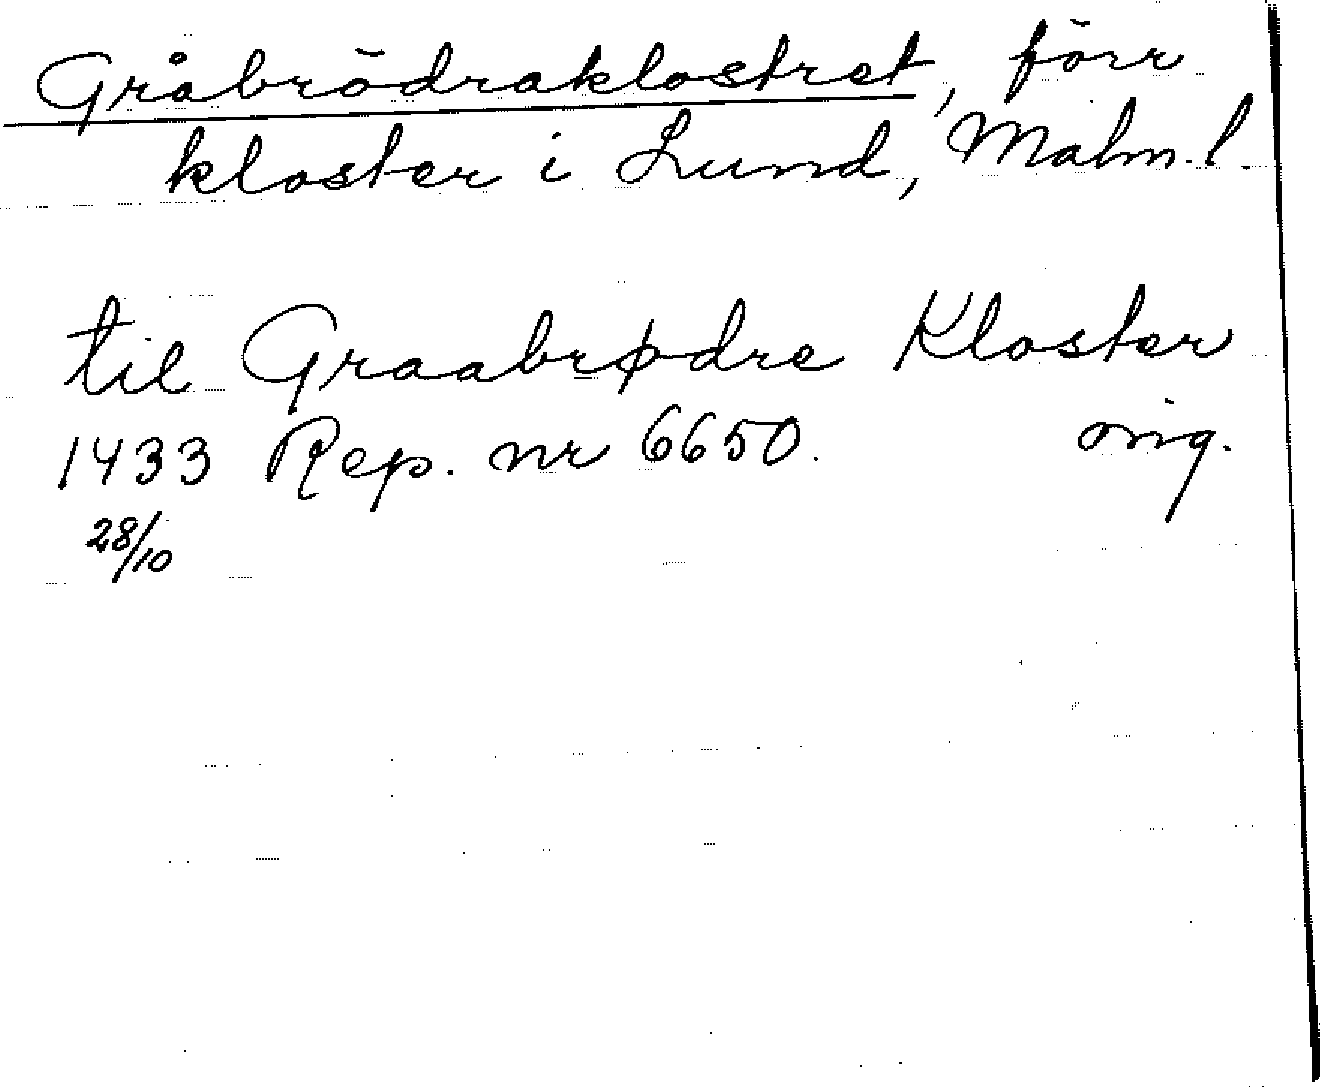 Gråbrödraklostret, förr
kloster i Lund, Malm. l.
til Graabrødre Kloster
1433 Rep. nr 6650. orig.
28/10